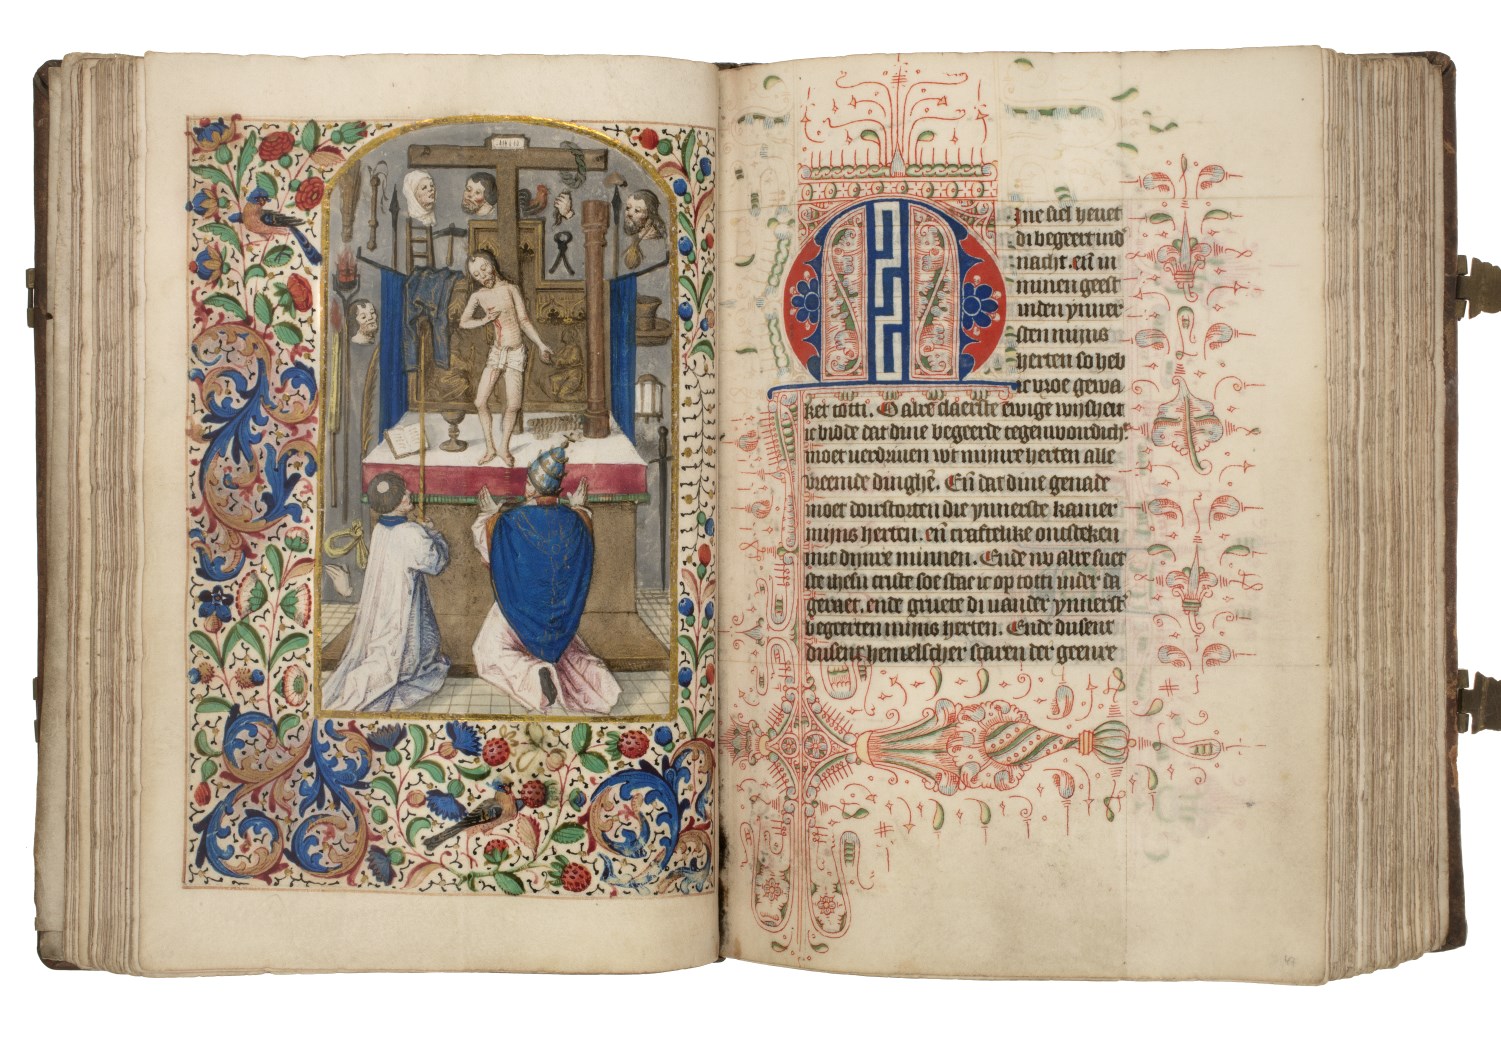 Mine siel heuet
di begeert in d͛
nacht. en̄ in
minen geest
in den ynner
sten mijns
herten so heb
ic vroe gewa
ket totti. O alre claerste ewige wijsheit
ic bidde dat dine begeerde tegenwordich͛
moet verdriuen wt mijnre herten alle
vreemde dinghē. En̄ dat dine genade
moet doirstorten die ynnerste kamer
mijns herten. en̄ craftelike ontsteken
mit dijnre minnen. Ende nv alre suet
ste ihesu criste soe stae ic op totti in der da
geraet. ende gruete di van der ynnerst͛
begeerten mijns herten. Ende dusent
dusent hemelscher scaren der geenre